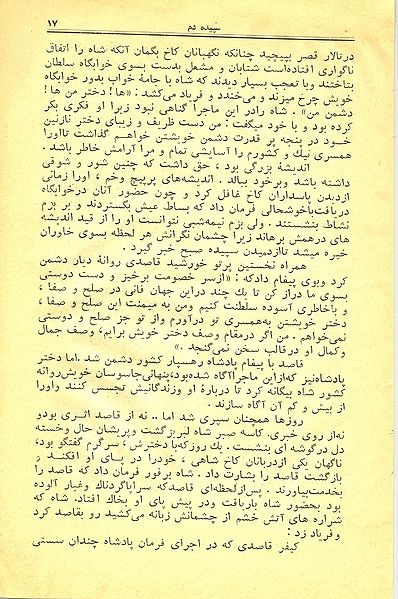 سپیده دم
۱۷
درتالار قصر بپیچید چنانکه نگهبانان کاخ بگمان آنکه شاه را اتفاق
ناگواری افتاده‌است شتابان و مشعل بدست بسوی خوابگاه سلطان
بتاختند وبا تعجب بسیار دیدند که شاه با جامهٔ خواب بدور خوابگاه
خویش چرخ میزند و می‌خندد و فریاد می‌کشد : «ها! دختر من ها !
دشمن من» . شاه رادر این ماجرا گناهی نبود زیرا او فکری بکر
کرده بود و با خود میگفت : من دست ظریف و زیبای دختر نازنین
خود در پنجه پر قدرت دشمن خویشتن خواهم گذاشت تااورا
همسری نیك و کشورم را آسایشی تمام و مرا آرامش خاطر باشد .
اندیشهٔ بزرگی بود ، حق داشت که چنین شور و شوقی
داشته باشد وبرخود ببالد . اندیشه‌های پرپیچ وخم ، اورا زمانی
ازدیدن پاسداران کاخ غافل کرد و چون حضور آنان درخوابگاه
دریافت‌باخوشحالی فرمان داد که بساط عیش بگستردند و بر بزم
نشاط بنشستند . ولی بزم نیمه‌شبی نتوانست او را از قید اندیشه
های درهمش برهاند زیرا چشمان نگرانش هر لحظه بسوی خاوران
خیره میشد تاازدمیدن سپیده صبح خبر گیرد .
همراه نخستین پرتو خورشید قاصدی روانهٔ دیار دشمن
کرد وبوی پیغام دادکه : «ازسر خصومت برخیز و دست دوستی
بسوی ما دراز کن تا یك چند دراین جهان فانی در صلح و صفا ،
و باخاطری آسوده سلطنت کنیم ومن به میمنت این صلح و صفا ،
دختر خویشتن به‌همسری تو درآورم واز تو جز صلح و دوستی
نمی‌خواهم . من اگر درمقام وصف دختر خویش برایم، وصف جمال
وکمال او درقالب سخن نمی‌گنجد .»
قاصد با پیغام پادشاه رهسپار کشور دشمن شد .اما دختر
پادشاه‌نیز که‌ازاین ماجرا آگاه شده‌بود،بنهانی‌جاسوسان خویش‌روانه
کشور شاه بیگانه کرد تا دربارهٔ او وزندگانیش تجسس کنند واورا
از بیش و کم آن آگاه سازند .
روزها همچنان سپری شد اما .. نه از قاصد اثری بودو
نه‌از روی خبری. کاسه صبر شاه لبرپزگشت وپریشان حال وخسته
دل درگوشه ای بنشست . یك روزکه‌با دخترش ، سرگرم گفتگو بود،
ناگهان یکی ازدربانان کاخ شاهی ، خودرا در پای او افکند و
بازگشت قاصد را بشارت داد . شاه برفور فرمان داد که قاصد را
بخدمت‌بیاورند . پس‌ازلحظه‌ای قاصدکه سراپا‌گردناك وغبار آلوده
بود بحضور شاه باریافت ودر پیش پای او بخاك افتاد. شاه که
شراره های آتش خشم از چشمانش زبانه می‌کشید رو بقاصد کرد
و فریاد زد :
کیفر قاصدی که در اجرای فرمان پادشاه چندان سستی